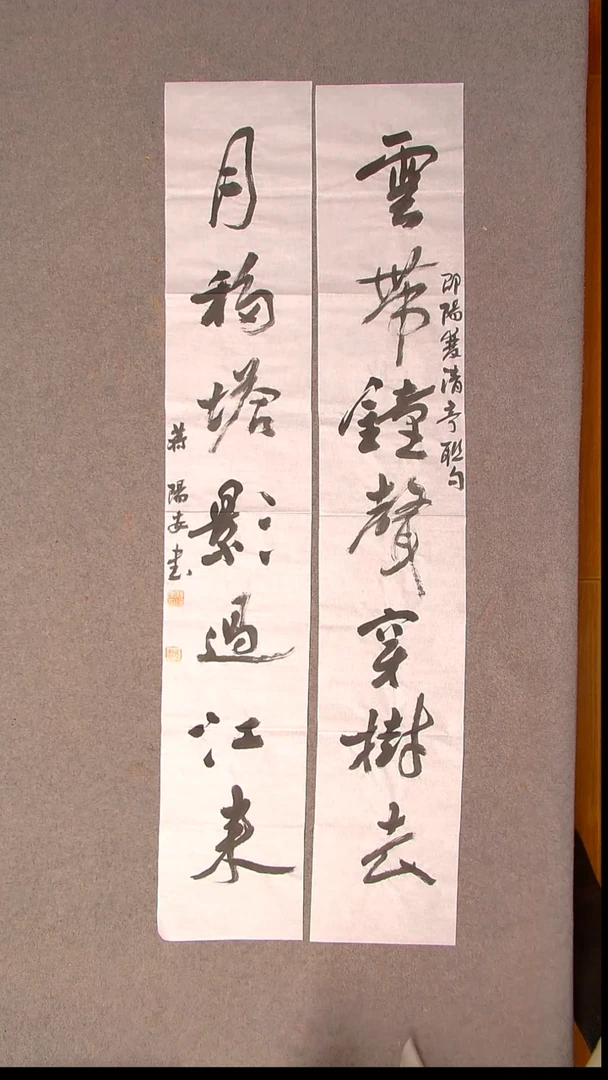 雲帶鐘聲穿樹去
邵陽雙清亭聯句
月移塔影過江來
蔣陽安書